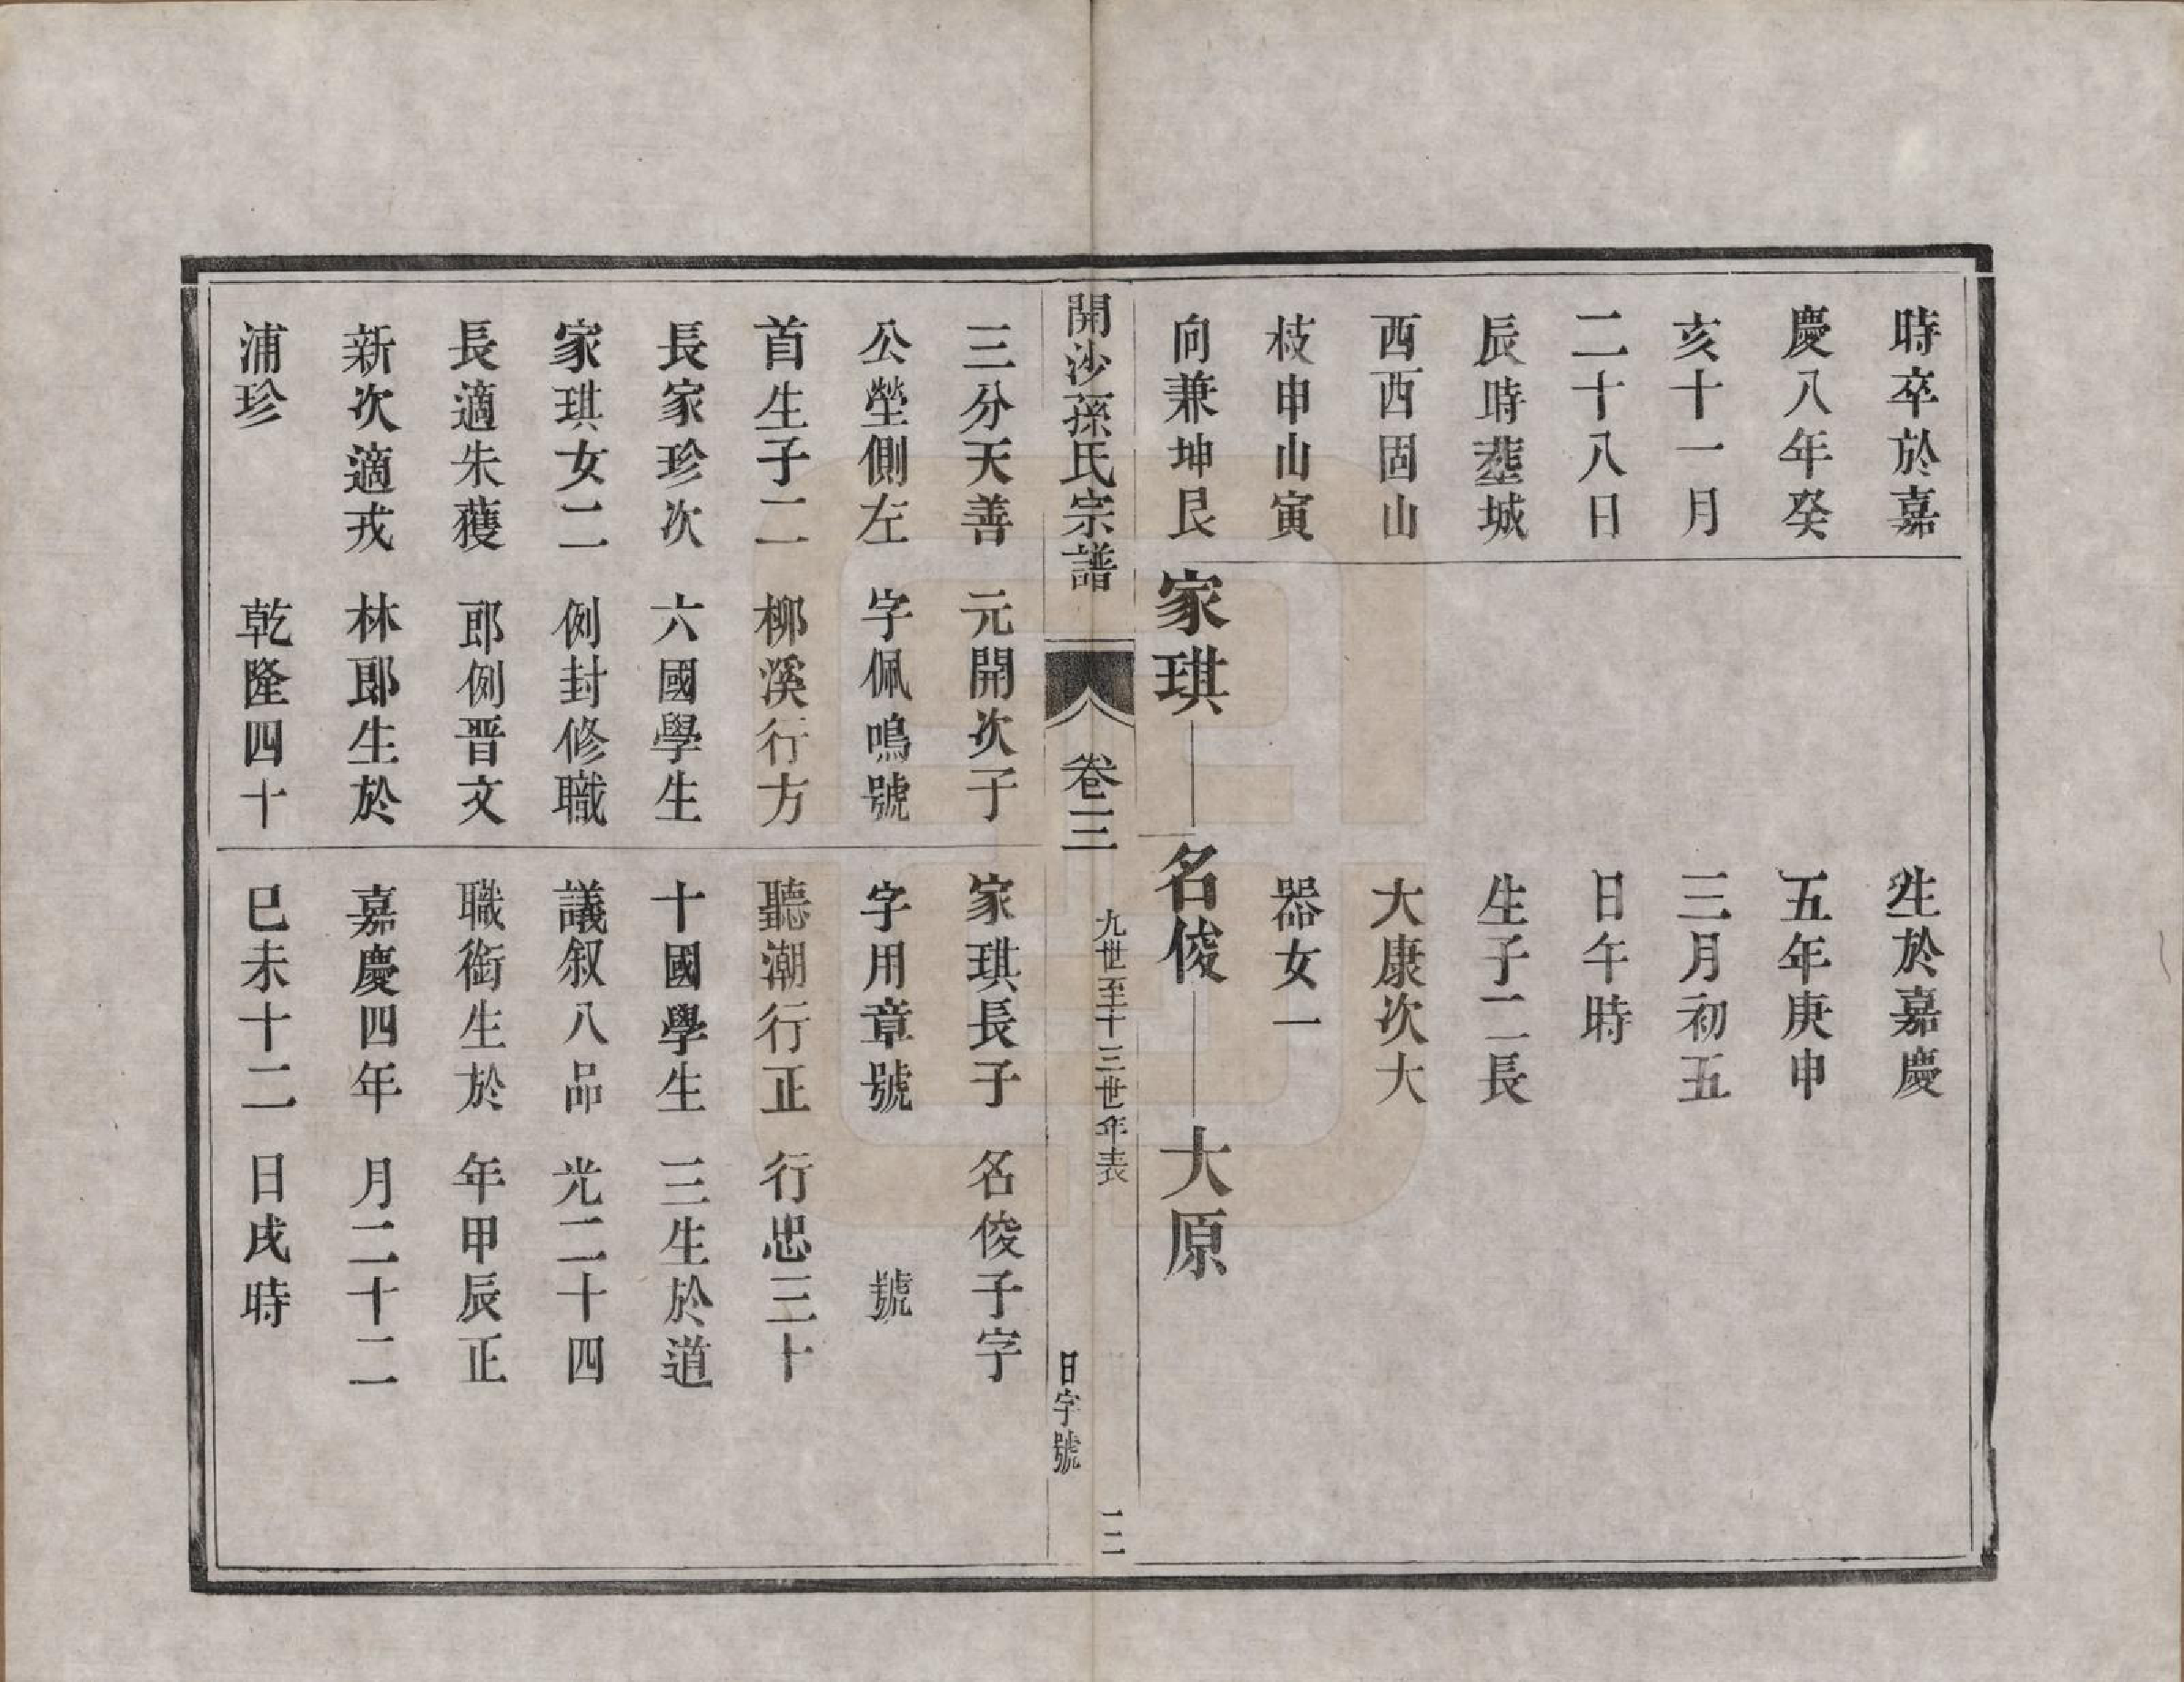 時卒於嘉
慶八年癸
亥十一月
二十八日
辰時塟城
西西固山
枝申山寅
向兼坤艮
三分天善
公塋側左
首生子二
長家珍次
家琪女二
長適朱蒦
新次適戎
浦珍
家琪
元開次子
字佩鳴號
柳溪行方
六國學生
例封修職
郎例晋文
林郎生於
乾隆四十
生於嘉慶
五年庚申
三月初五
日午時
生子二長
大康次大
器女一
名俊
家琪長子
字用章號
聽潮行正
十國學生
議叙八品
職銜生於
嘉慶四年
巳未十二
大原
名俊子字
號
行忠三十
三生於道
光二十四
年甲辰正
月二十二
日戌時
開沙孫氏宗譜
卷三
九世至十三世年表
日字號
一二